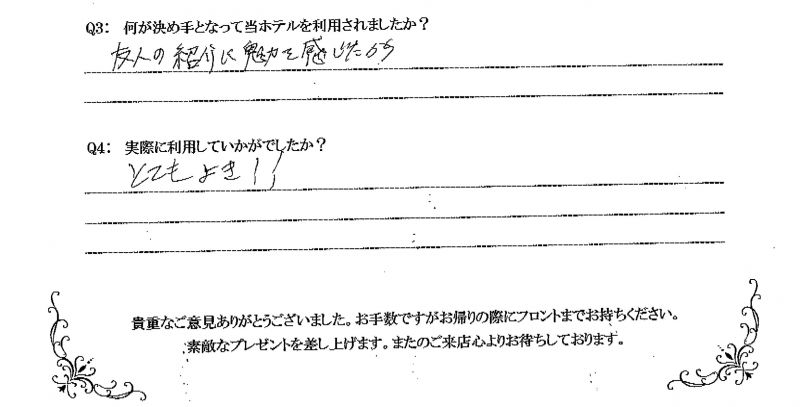 Q3： 何が決め手となって当ホテルを利用されましたか？
友人の紹介に魅力を感じたから
Q4： 実際に利用していかがでしたか？
とてもよき！！
貴重なご意見ありがとうございました。お手数ですがお帰りの際にフロントまでお持ちください。
素敵なプレゼントを差し上げます。またのご来店心よりお待ちしております。